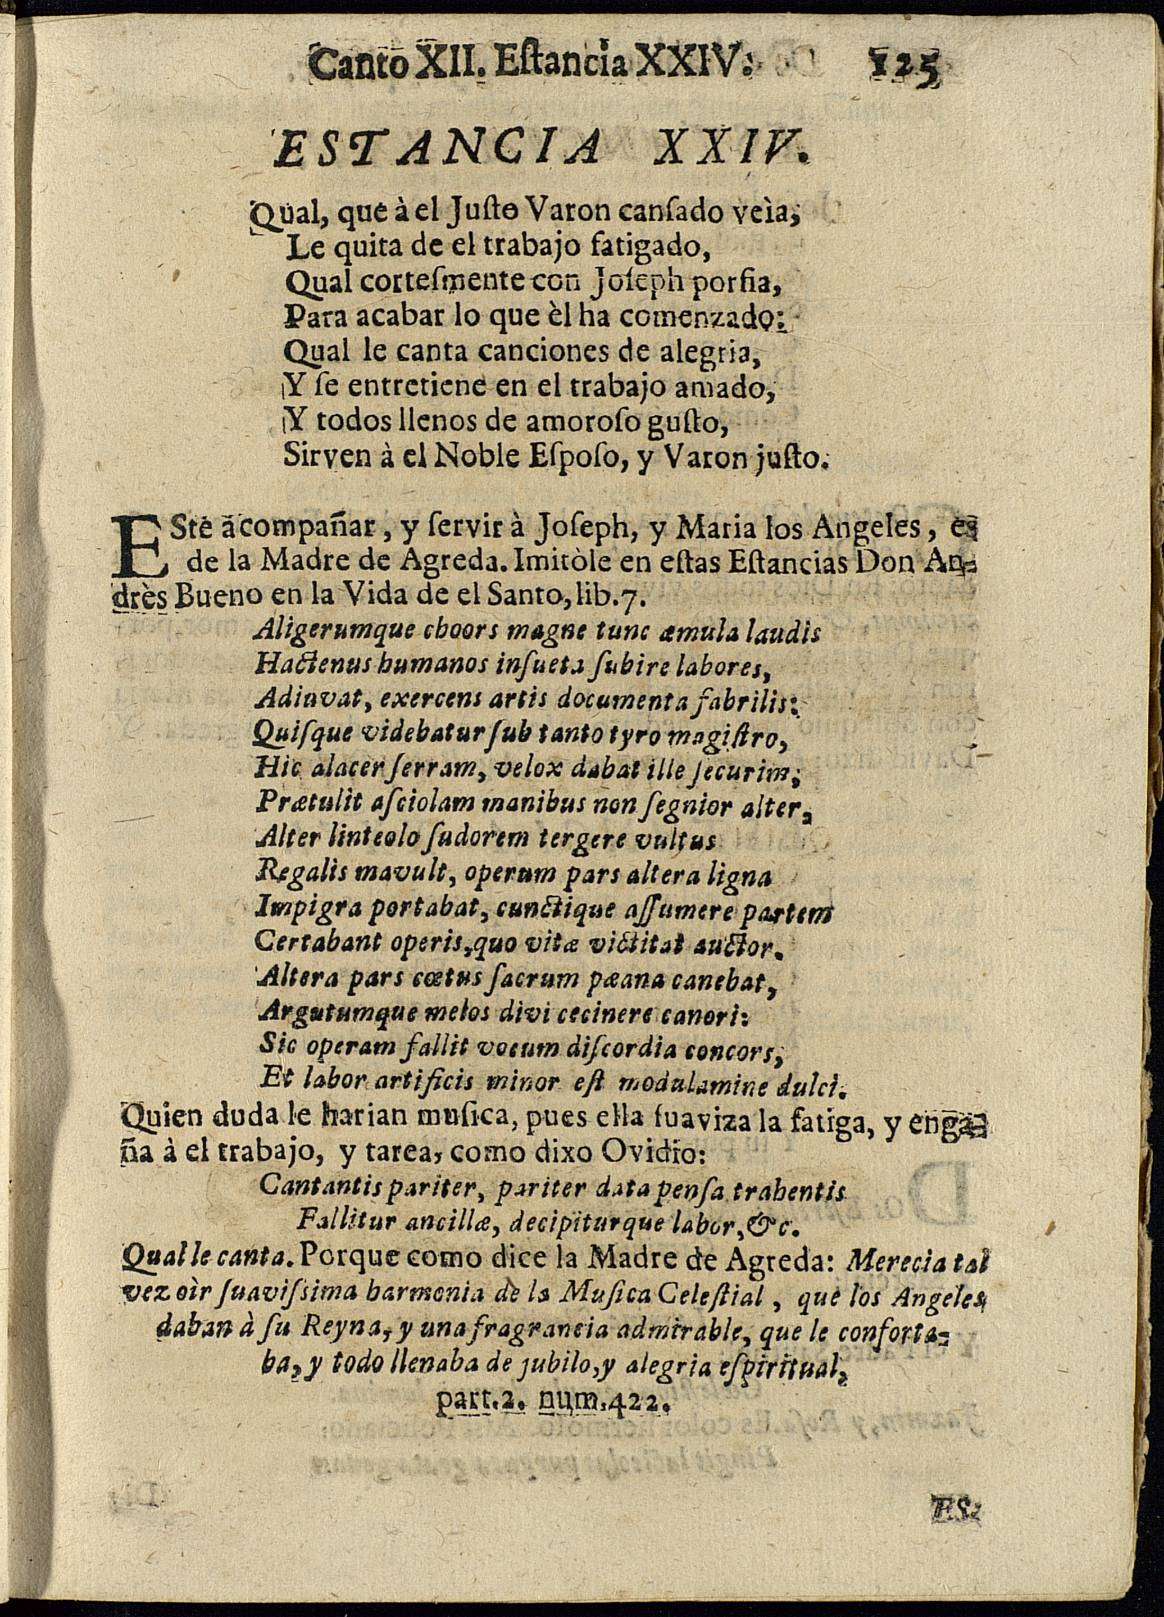 Canto XII. Eſtancia XXIV. 125
ESTANCIA XXIV.
Qual, que à el Juſto Varon canſado veìa,
Le quita de el trabajo fatigado,
Qual corteſmente con Joſeph porfia,
Para acabar lo que èl ha comenzado:
Qual le canta canciones de alegria,
Y ſe entretiene en el trabajo amado,
Y todos llenos de amoroſo guſto,
Sirven à el Noble Eſpoſo, y Varon juſto.
ESte acompañar, y ſervir à Joſeph, y Maria los Angeles, es
de la Madre de Agreda. Imitòle en eſtas Eſtancias Don An-
drès Bueno en la Vida de el Santo, lib.7.
Aligerumque choors magne tunc æmula laudis
Hactenus humanos inſueta ſubire labores,
Adiuvat, exercens artis documenta fabrilis:
Quiſque videbatur ſub tanto tyro magiſtro,
Hic alacer ſerram, velox dabat ille ſecurim,
Prætulit aſciolam manibus non ſegnior alter,
Alter linteolo ſudorem tergere vultus
Regalis mavult, operum pars altera ligna
Impigra portabat, cunctique aſſumere partem
Certabant operis, quo vitæ victitat auctor.
Altera pars cœtus ſacrum pæana canebat,
Argutumque melos divi cecinere canori:
Sic operam fallit vocum diſcordia concors,
Et labor artificis minor eſt modulamine dulci.
Quien duda le harian muſica, pues ella ſuaviza la fatiga, y enga-
ña à el trabajo, y tarea, como dixo Ovidio:
Cantantis pariter, pariter data penſa trahentis
Fallitur ancillæ, decipiturque labor, &c.
Qual le canta. Porque como dice la Madre de Agreda: Merecia tal
vez oìr ſuaviſsima harmonia de la Muſica Celeſtial, que los Angeles
daban à ſu Reyna, y una fragrancia admirable, que le conforta-
ba, y todo llenaba de jubilo, y alegria eſpiritual,
part.2. num.422.
ES-